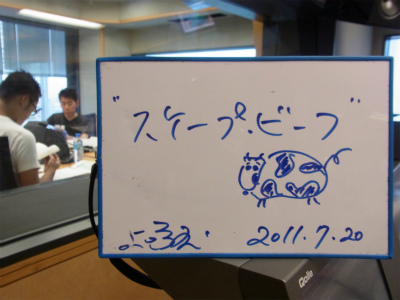 "スケープ・ビーフ"
2011.7.20
Qolle